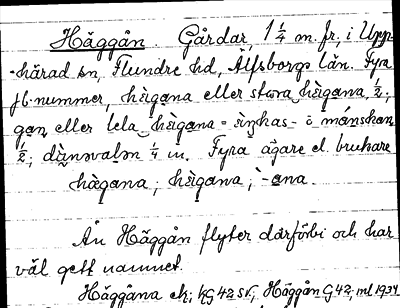 Häggån. Gårdar, 1 1/4 m. fr., i Upp-
-härad sn, Flundre hd, Älfsborgs län. Fyra
jb.nummer, hègana eller stora hègana, 1/2;
gan eller lela hègana - - å månskan
1/2; 1/4 m. Fyra ägare el. brukare
hègana; hègana; -ana.
Ån Häggån flyter därförbi och har
väl gett namnet.
Häggåna ek; kG 42 SV, Häggån G 42; ml 1934